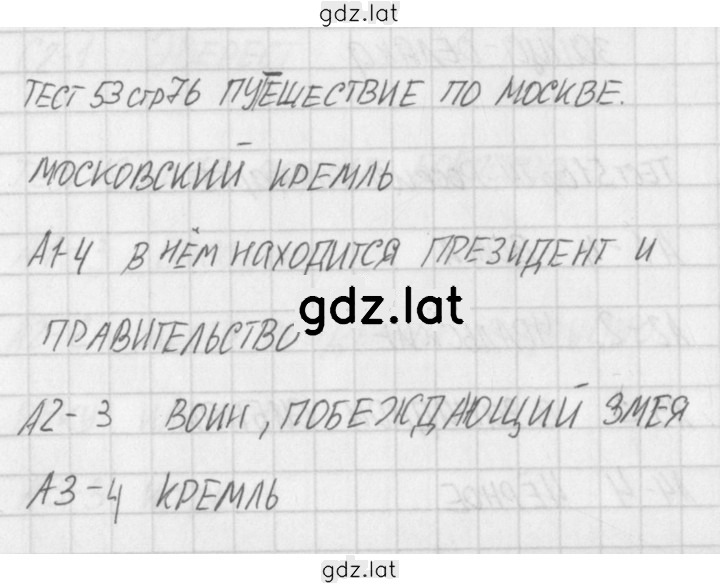 gdz.lat
ТЕСТ 53 стр 76 ПУТЕШЕСТВИЕ ПО МОСКВЕ.
МОСКОВСКИЙ КРЕМЛЬ
А1-4 В НЁМ НАХОДИТСЯ ПРЕЗИДЕНТ И
gdz.lat
ПРАВИТЕЛЬСТВО
А2-3 ВОИН, ПОБЕЖДАЮЩИЙ ЗМЕЯ
А3-4 КРЕМЛЬ
gdz.lat